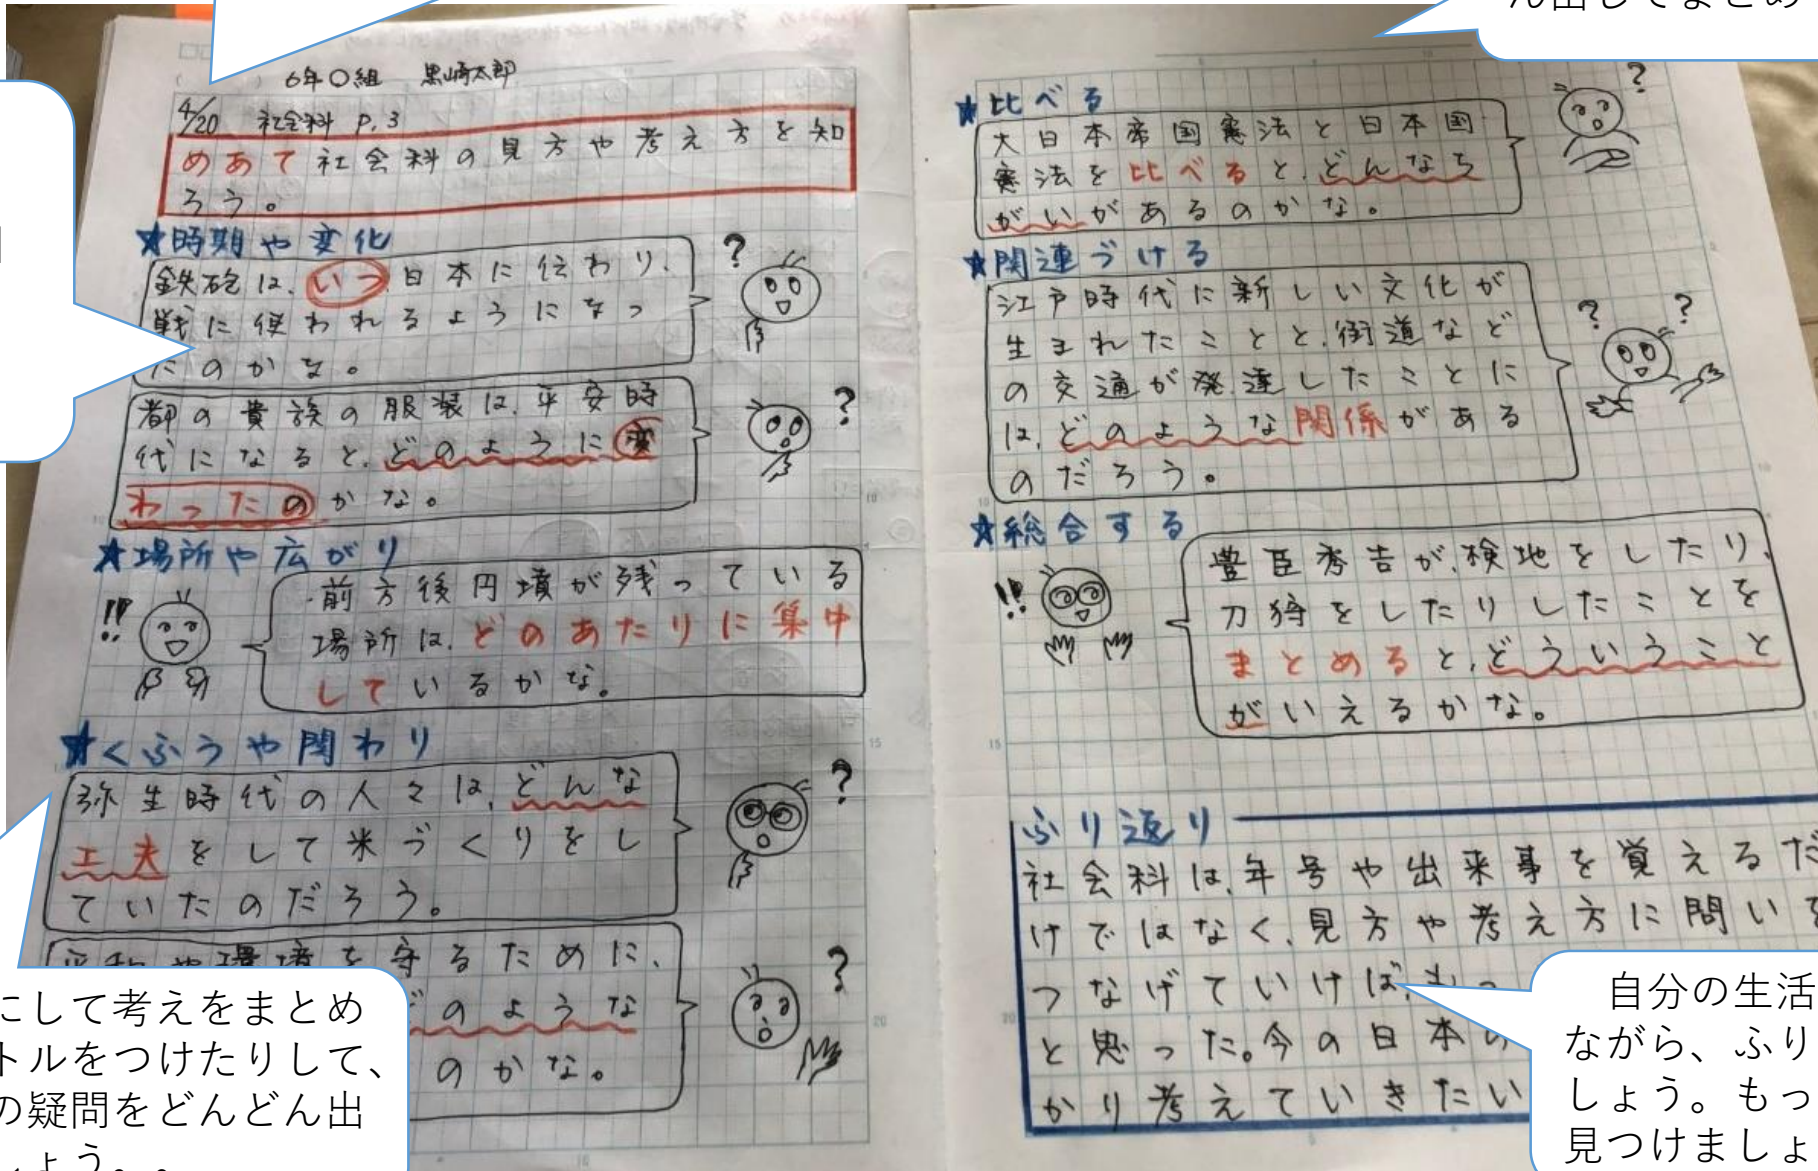 6年〇組 黒崎太郎
4/20 社会科 P.3
めあて社会科の見方や考え方を知
ろう。
★時期や変化
鉄砲は、いつ日本に伝わり、
戦に使われるようになっ
たのかな。
?
都の貴族の服装は、平安時
代になると、どのように変
わったのかな。
?
★場所や広がり
前方後円墳が残っている
場所は、どのあたりに集中
しているかな。
!!
★くふうや関わり
弥生時代の人々は、どんな
工夫をして米づくりをし
ていたのだろう。
?
平和や環境を守るために、
どのような
のかな。
?
にして考えをまとめ
トルをつけたりして、
の疑問をどんどん出
しょう。。
ん出してまとめ
★比べる
大日本帝国憲法と日本国
憲法を比べると、どんなち
がいがあるのかな。
?
★関連づける
江戸時代に新しい文化が
生まれたことと、街道など
の交通が発達したことに
は、どのような関係がある
のだろう。
? ?
★総合する
豊臣秀吉が、検地をしたり、
刀狩をしたりしたことを
まとめると、どういうこと
がいえるかな。
!!
ふり返り
社会科は、年号や出来事を覚えるだ
けではなく、見方や考え方に問いを
つなげていけば、もっ
と思った。今の日本の
かり考えていきたい
自分の生活
ながら、ふり
しょう。もっ
見つけましょ